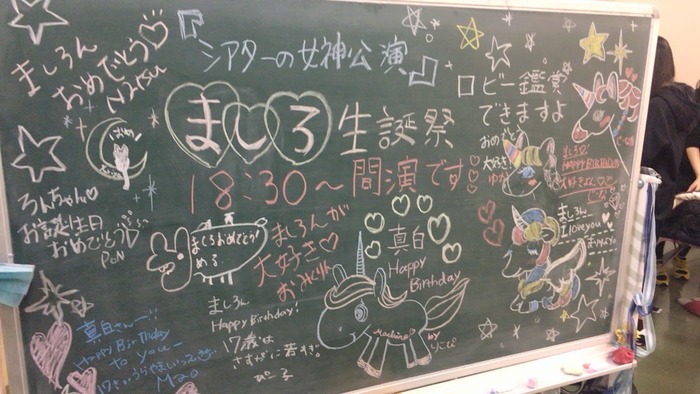 『シアターの女神公演』
ましろ生誕祭
18:30～開演です♡
ロビー鑑賞
できますよ
ましろん
おめでとう♡
Natsu
おめ！
ろんちゃん♡
お誕生日
おめでとう♡
PON
ましろおめでとう！
める
ましろんが
大好き♡
おみくりん
真白
Happy
Birthday
Mashiro
by
りこぴ
ましろん
Happy Birthday!
17歳は
さすがに若すぎ。
ぴーチ
真白さんー！！
Happy Birthday
to you～
Mao
おめでとう
大好き
ゆか
ましろ♡
HAPPY BIRTHDAY
大好きよ♡
ましろん
I love you